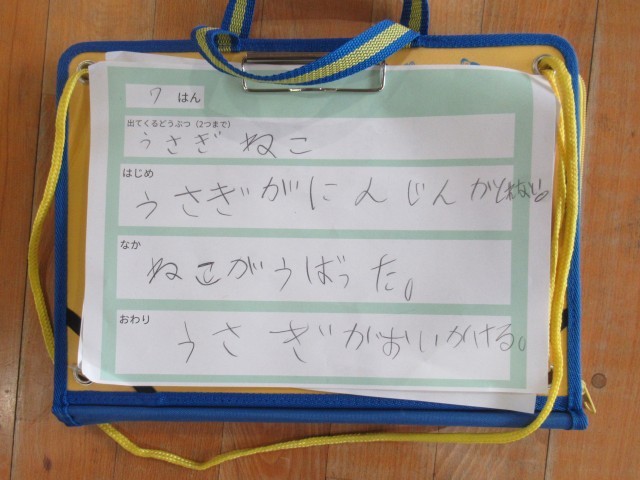 7 はん
出てくるどうぶつ(2つまで)
うさぎ ねこ
はじめ
うさぎがにんじんがとれない。
なか
ねこがうばった。
おわり
うさぎがおいかける。